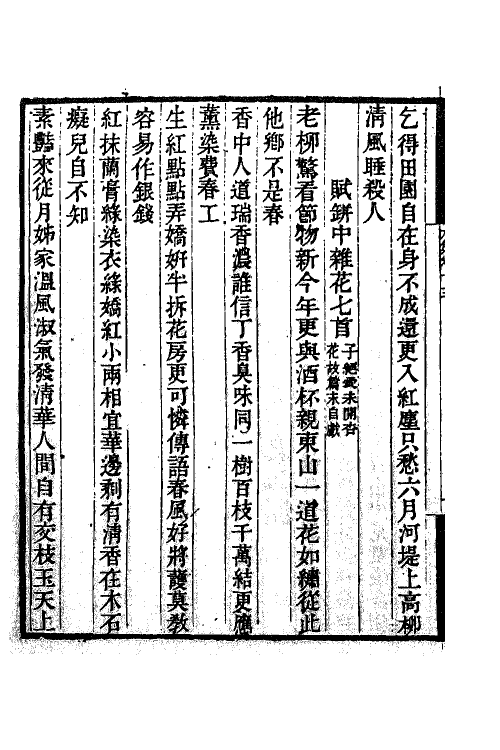 乞得田園自在身不成還更入紅塵只愁六月河堤上高柳
清風睡殺人
賦缾中雜花七首
予絕愛未開杏
花故篇末自戲
老柳驚看節物新今年更與酒杯親東山一道花如繡從此
他鄉不是春
香中人道瑞香濃誰信丁香臭味同一樹百枝千萬結更應
薰染費春工
生紅點點弄嬌妍半拆花房更可憐傳語春風好將護莫教
容易作銀錢
紅抹蘭膏綠染衣綠嬌紅小兩相宜華邊剩有清香在木石
癡兒自不知
素豔來從月姊家溫風淑氣發清華人間自有交枝玉天上